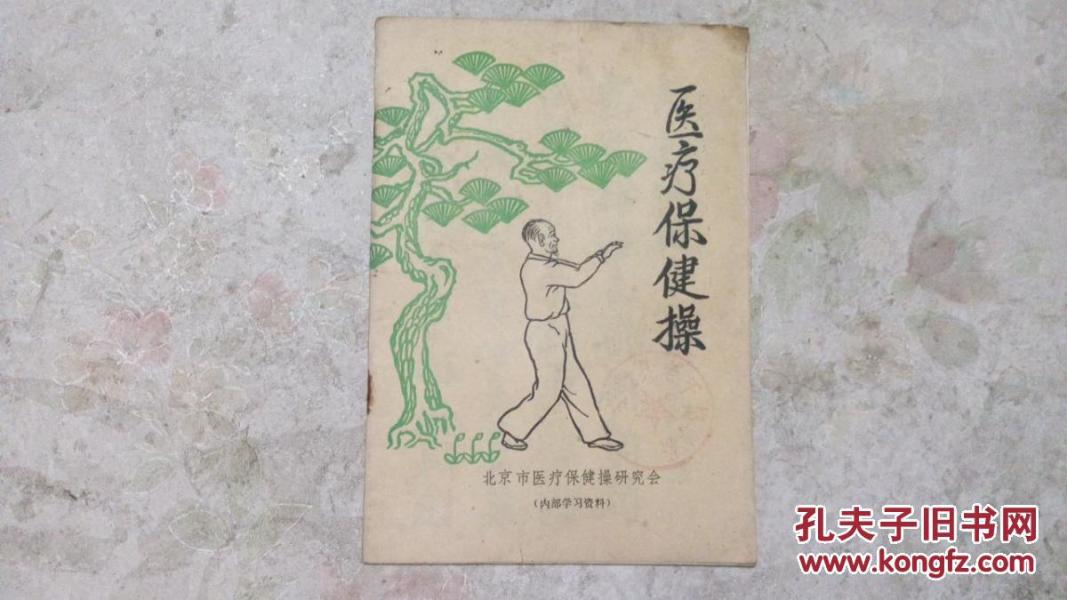 医疗保健操
北京市医疗保健操研究会
(内部学习资料)
孔夫子旧书网
www.kongfz.com